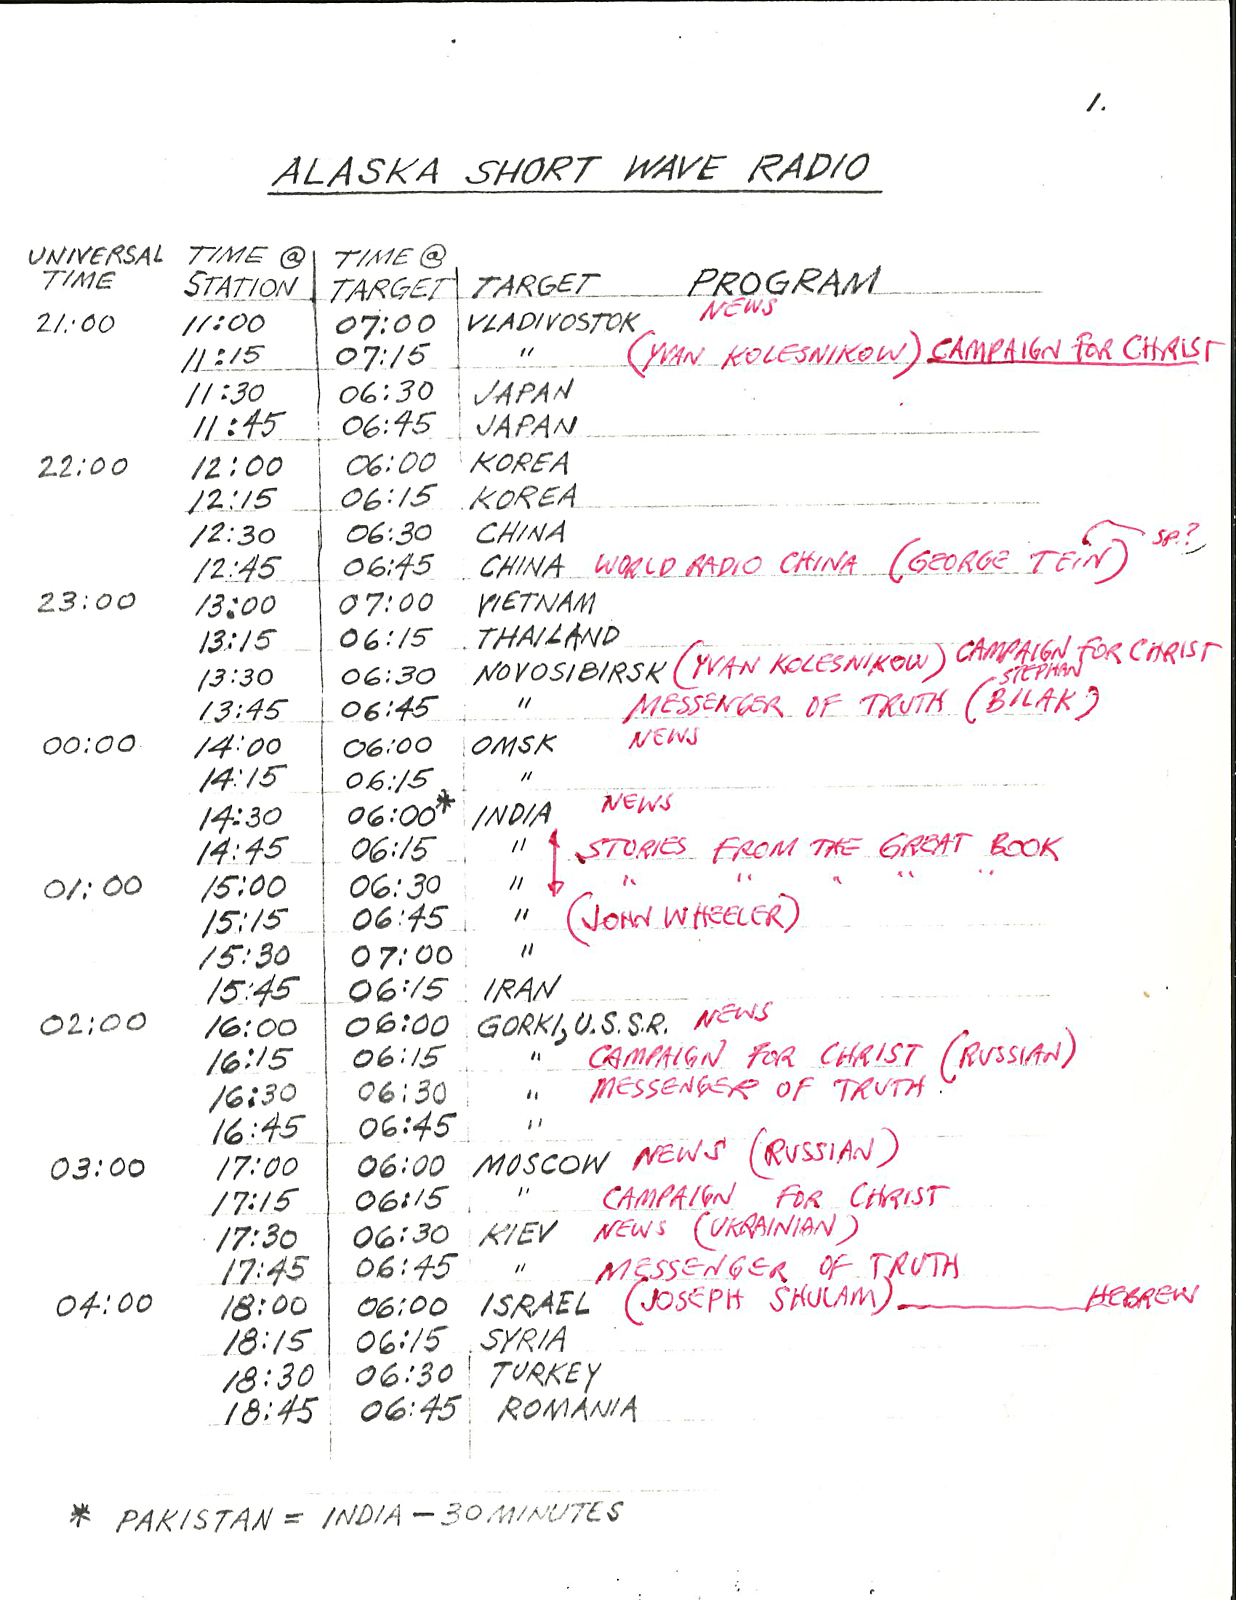 1.
ALASKA SHORT WAVE RADIO
UNIVERSAL TIME @ TIME @
TIME STATION TARGET TARGET PROGRAM
21:00 11:00 07:00 VLADIVOSTOK NEWS
11:15 07:15 " (YVAN KOLESNIKOW) CAMPAIGN FOR CHRIST
11:30 06:30 JAPAN
11:45 06:45 JAPAN
22:00 12:00 06:00 KOREA
12:15 06:15 KOREA
12:30 06:30 CHINA SP.?
12:45 06:45 CHINA WORLD RADIO CHINA (GEORGE TEIN)
23:00 13:00 07:00 VIETNAM
13:15 06:15 THAILAND
13:30 06:30 NOVOSIBIRSK (YVAN KOLESNIKOW) CAMPAIGN FOR CHRIST
STEPHAN
13:45 06:45 " MESSENGER OF TRUTH (BILAK?)
00:00 14:00 06:00 OMSK NEWS
14:15 06:15 "
14:30 06:00* INDIA NEWS
14:45 06:15 " STORIES FROM THE GREAT BOOK
01:00 15:00 06:30 " " " " " "
15:15 06:45 " (JOHN WHEELER)
15:30 07:00 "
15:45 06:15 IRAN
02:00 16:00 06:00 GORKI, U.S.S.R. NEWS
16:15 06:15 " CAMPAIGN FOR CHRIST (RUSSIAN)
16:30 06:30 " MESSENGER OF TRUTH
16:45 06:45 "
03:00 17:00 06:00 MOSCOW NEWS (RUSSIAN)
17:15 06:15 " CAMPAIGN FOR CHRIST
17:30 06:30 KIEV NEWS (UKRAINIAN)
17:45 06:45 " MESSENGER OF TRUTH
04:00 18:00 06:00 ISRAEL (JOSEPH SHULAM) HEBREW
18:15 06:15 SYRIA
18:30 06:30 TURKEY
18:45 06:45 ROMANIA
* PAKISTAN = INDIA – 30 MINUTES